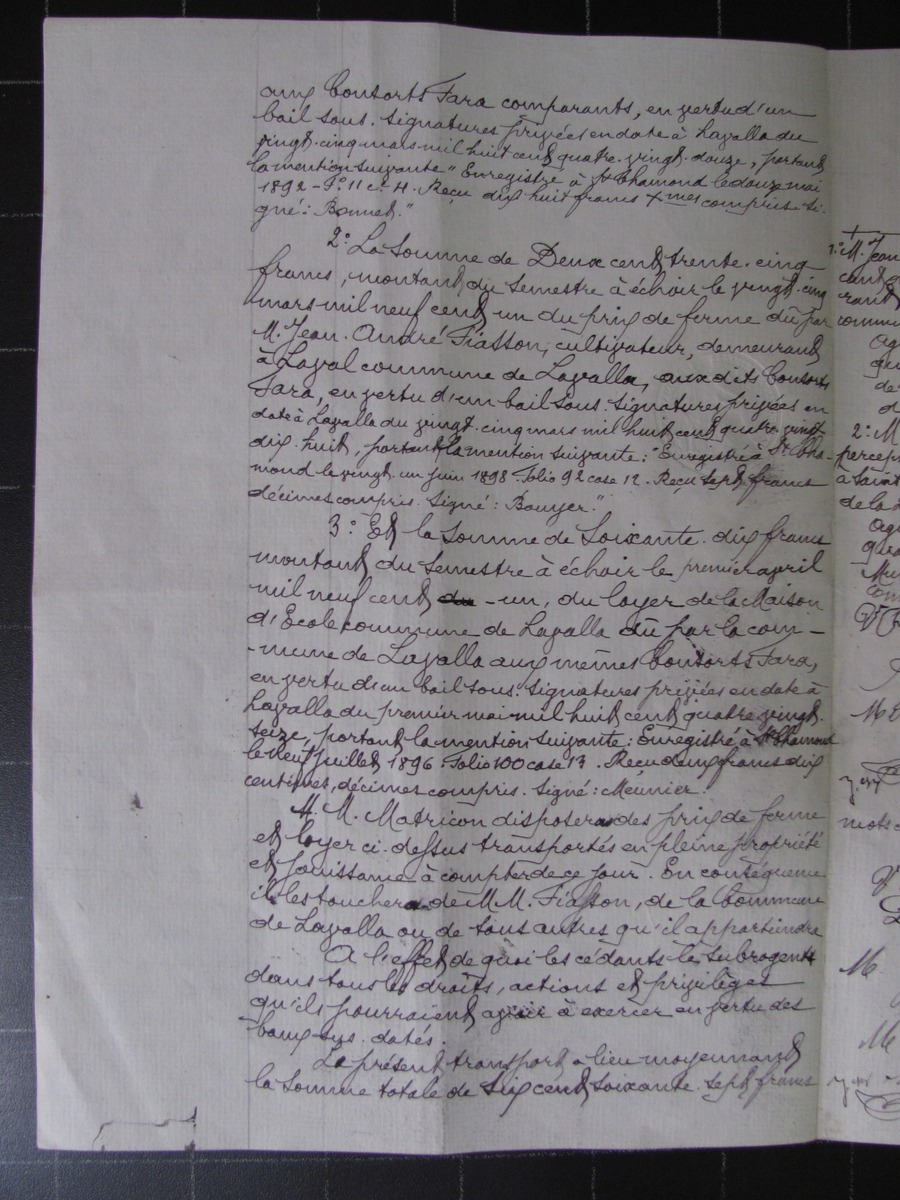 aux Consorts Fara comparants, en vertu d'un
bail sous-signatures privées en date à Lavalla du
vingt-cinq mars mil huit cent quatre-vingt-douze, portant
la mention suivante "Enregistré à St Chamond le douze mai
1892 - F° 11 c. 4. Reçu dix huit francs Xmes compris. Si-
gné: Bonnet."
2° La somme de Deux cent trente-cinq
francs, montant du semestre à échoir le vingt-cinq
mars mil neuf cent un du prix de ferme dû par
M. Jean-André Fiasson, cultivateur, demeurant
à Laval commune de Lavalla, aux dits Consorts
Fara, en vertu d'un bail sous-signatures privées en
date à Lavalla du vingt-cinq mars mil huit cent quatre-vingt
dix-huit, portant la mention suivante: "Enregistré à St Cha-
mond le vingt-un juin 1898 Folio 92 case 12. Reçu sept francs
décimes compris. Signé: Bouyer."
3° Et la somme de Soixante-dix francs
montant du semestre à échoir le premier avril
mil neuf cent du -un, du loyer de la Maison
d'École commune de Lavalla dû par la com-
-mune de Lavalla aux mêmes Consorts Fara,
en vertu d'un bail sous-signatures privées en date à
Lavalla du premier mai mil huit cent quatre-vingt-
seize, portant la mention suivante: Enregistré à St Chamond
le neuf juillet 1896 Folio 100 case 13. Reçu deux francs dix
centimes, décimes compris. Signé: Meunier.
M. Matricon disposera des prix de ferme
et loyer ci-dessus transportés en pleine propriété
et jouissance à compter de ce jour. En conséquence
il les touchera de MM. Fiasson, de la Commune
de Lavalla ou de tous autres qu'il appartiendra
A l'effet de quoi les cédants le subrogent
dans tous les droits, actions et privilèges
qu'ils pourraient avoir à exercer en vertu des
baux sus-datés.
Le présent transport a lieu moyennant
la somme totale de Six cent soixante-sept francs
1° M. Jean
cant
rant
commu
ag
qu
de
d
2° M
percep
à Saint
de la
ag
qu
com
M
mots
M
M